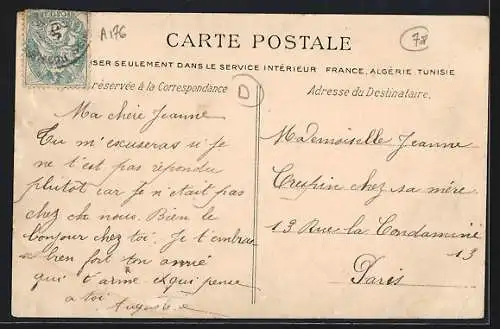 A176
78
CARTE POSTALE
ISER SEULEMENT DANS LE SERVICE INTÉRIEUR FRANCE, ALGÉRIE TUNISIE
réservée à la Correspondance
D
Adresse du Destinataire.
Ma chère Jeanne
Tu m'excuseras si je
ne t'est pas répondu
plutot car je n'etait pas
chez che nous. Bien le
bonjour chez toi. Je t'embras
bien fort ton amié
qui t'aime et qui pense
a toi Auguste
Mademoiselle Jeanne
Crespin chez sa mère
13 Rue la Condamine
13
Paris